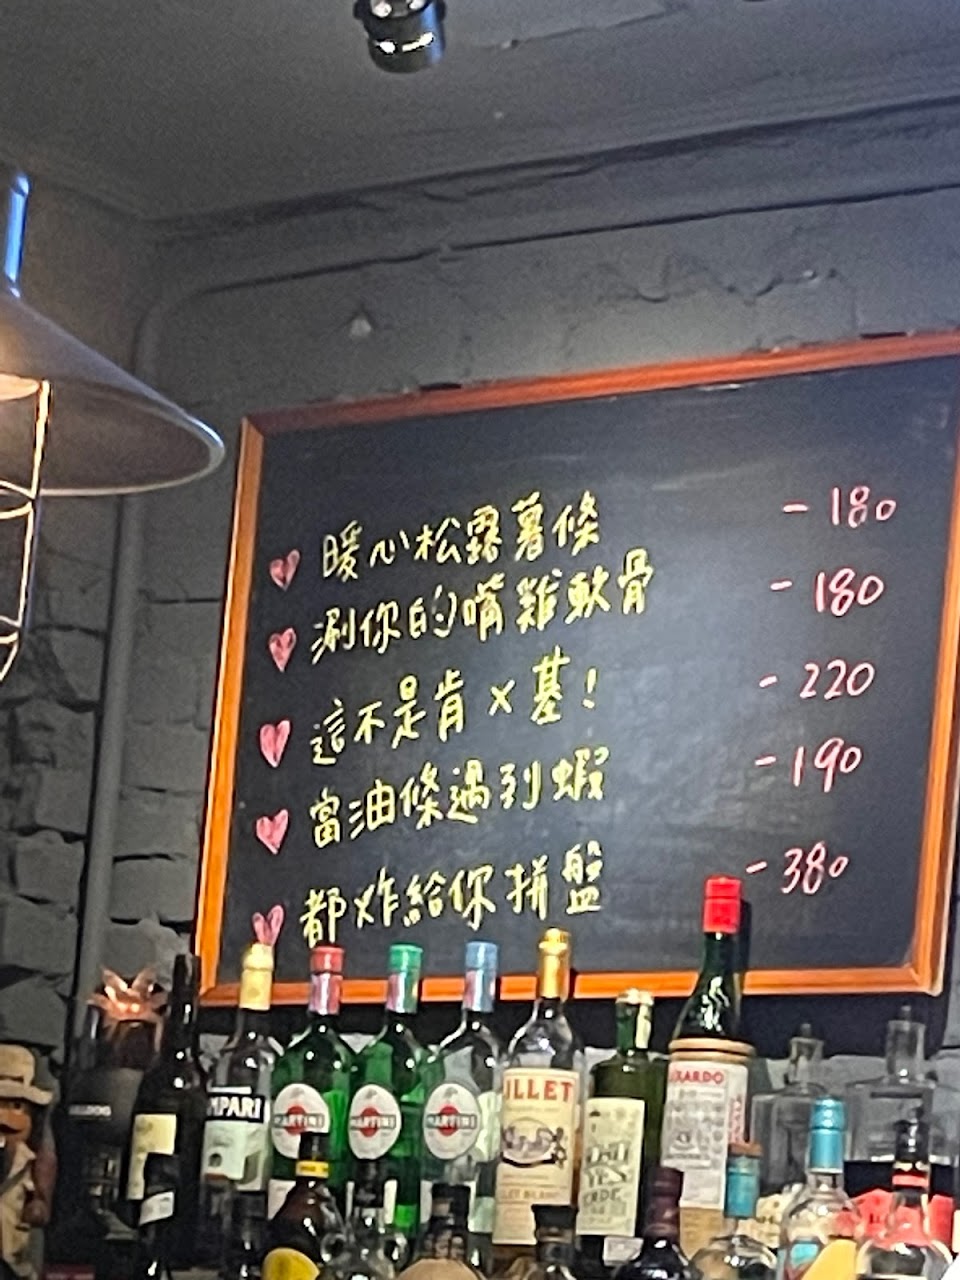 暖心松露薯條 - 180
涮你的嘴雞軟骨 - 180
這不是肯×基! - 220
當油條遇到蝦 - 190
都炸給你拼盤 - 380
MPARI
MARTINI
MARTINI
MARTINI
ILLET
XARDO